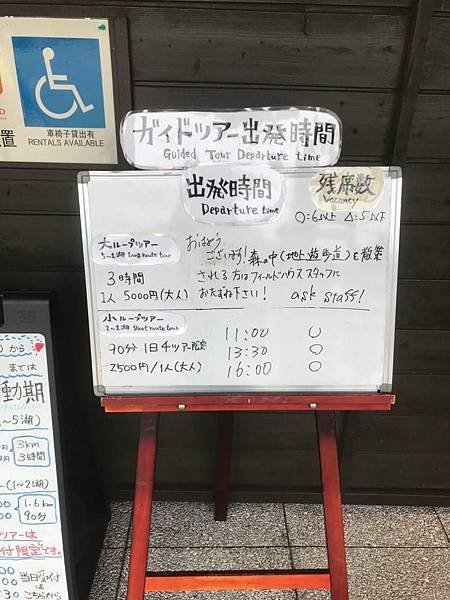 車椅子貸出有
RENTALS AVAILABLE
置
ガイドツアー出発時間
Guided Tour Departure time
出発時間
Departure time
残席数
Vacancy
○=6以上 △=5以下
大ループツアー
5〜1湖 Long route tour
おはよう
ございます!森の中(地上遊歩道)を散策
3時間
される方はフィールドハウススタッフに
1人 5000円(大人)
おたずね下さい! ask staff!
小ループツアー
2〜1湖 Short route tour
11:00 ○
90分 1日4ツアー限定
13:30 ○
2500円/1人(大人)
16:00 ○
から
までは
動期
〜5湖)
3km
3時間
(1〜2湖)
1.6km
90分
ツアーは
付限定です。
当日受付は
こちらから